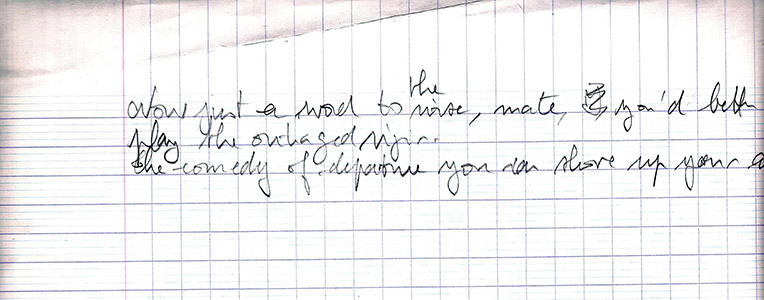 Now just a word to the wise, mate, you'd better
play the outraged virgin.
the comedy of departure you can shove up your a